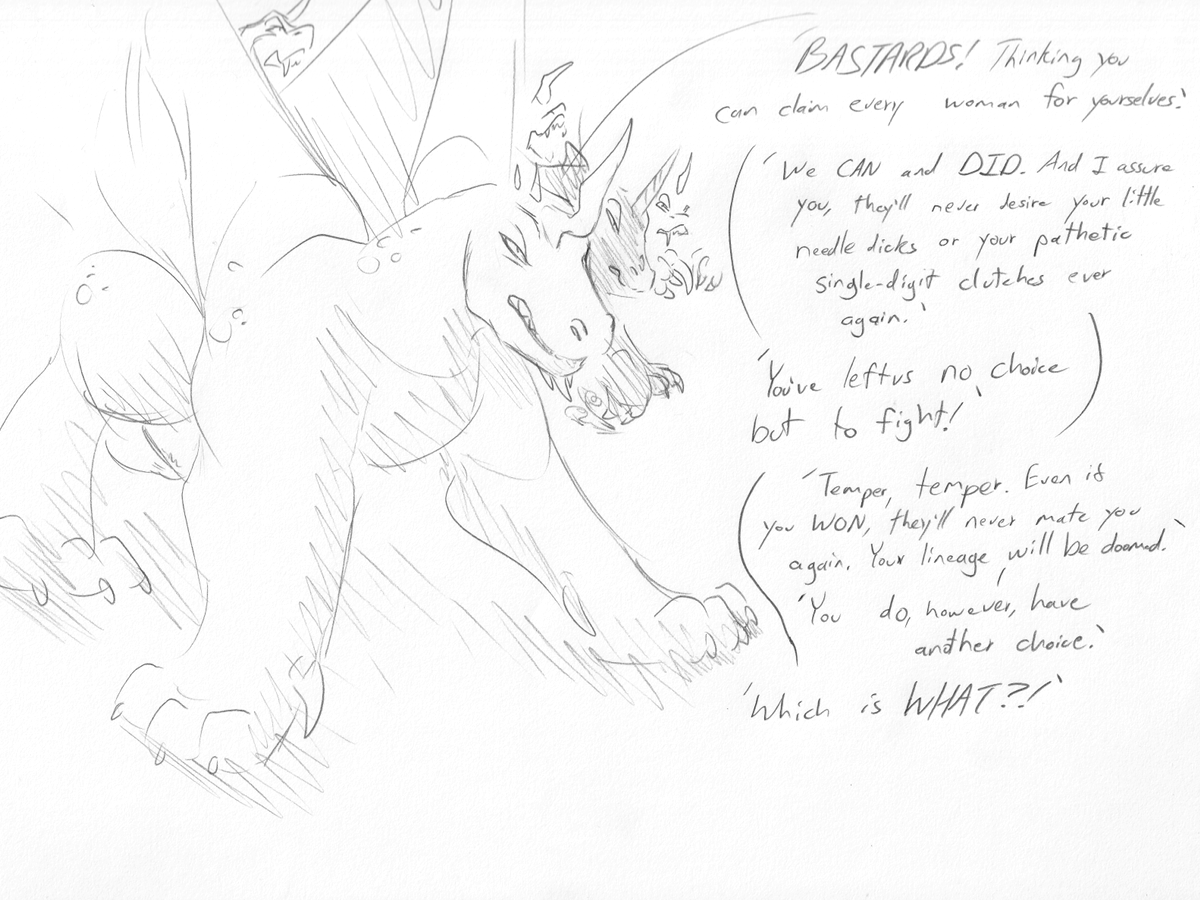 'BASTARDS! Thinking you
can claim every woman for yourselves.'
'We CAN and DID. And I assure
you, they'll never desire your little
needle dicks or your pathetic
single-digit clutches ever
again.'
'You've left us no choice
but to fight!'
'Temper, temper. Even if
you WON, they'll never mate you
again. Your lineage will be doomed.'
'You do, however, have
another choice.'
'Which is WHAT?!'